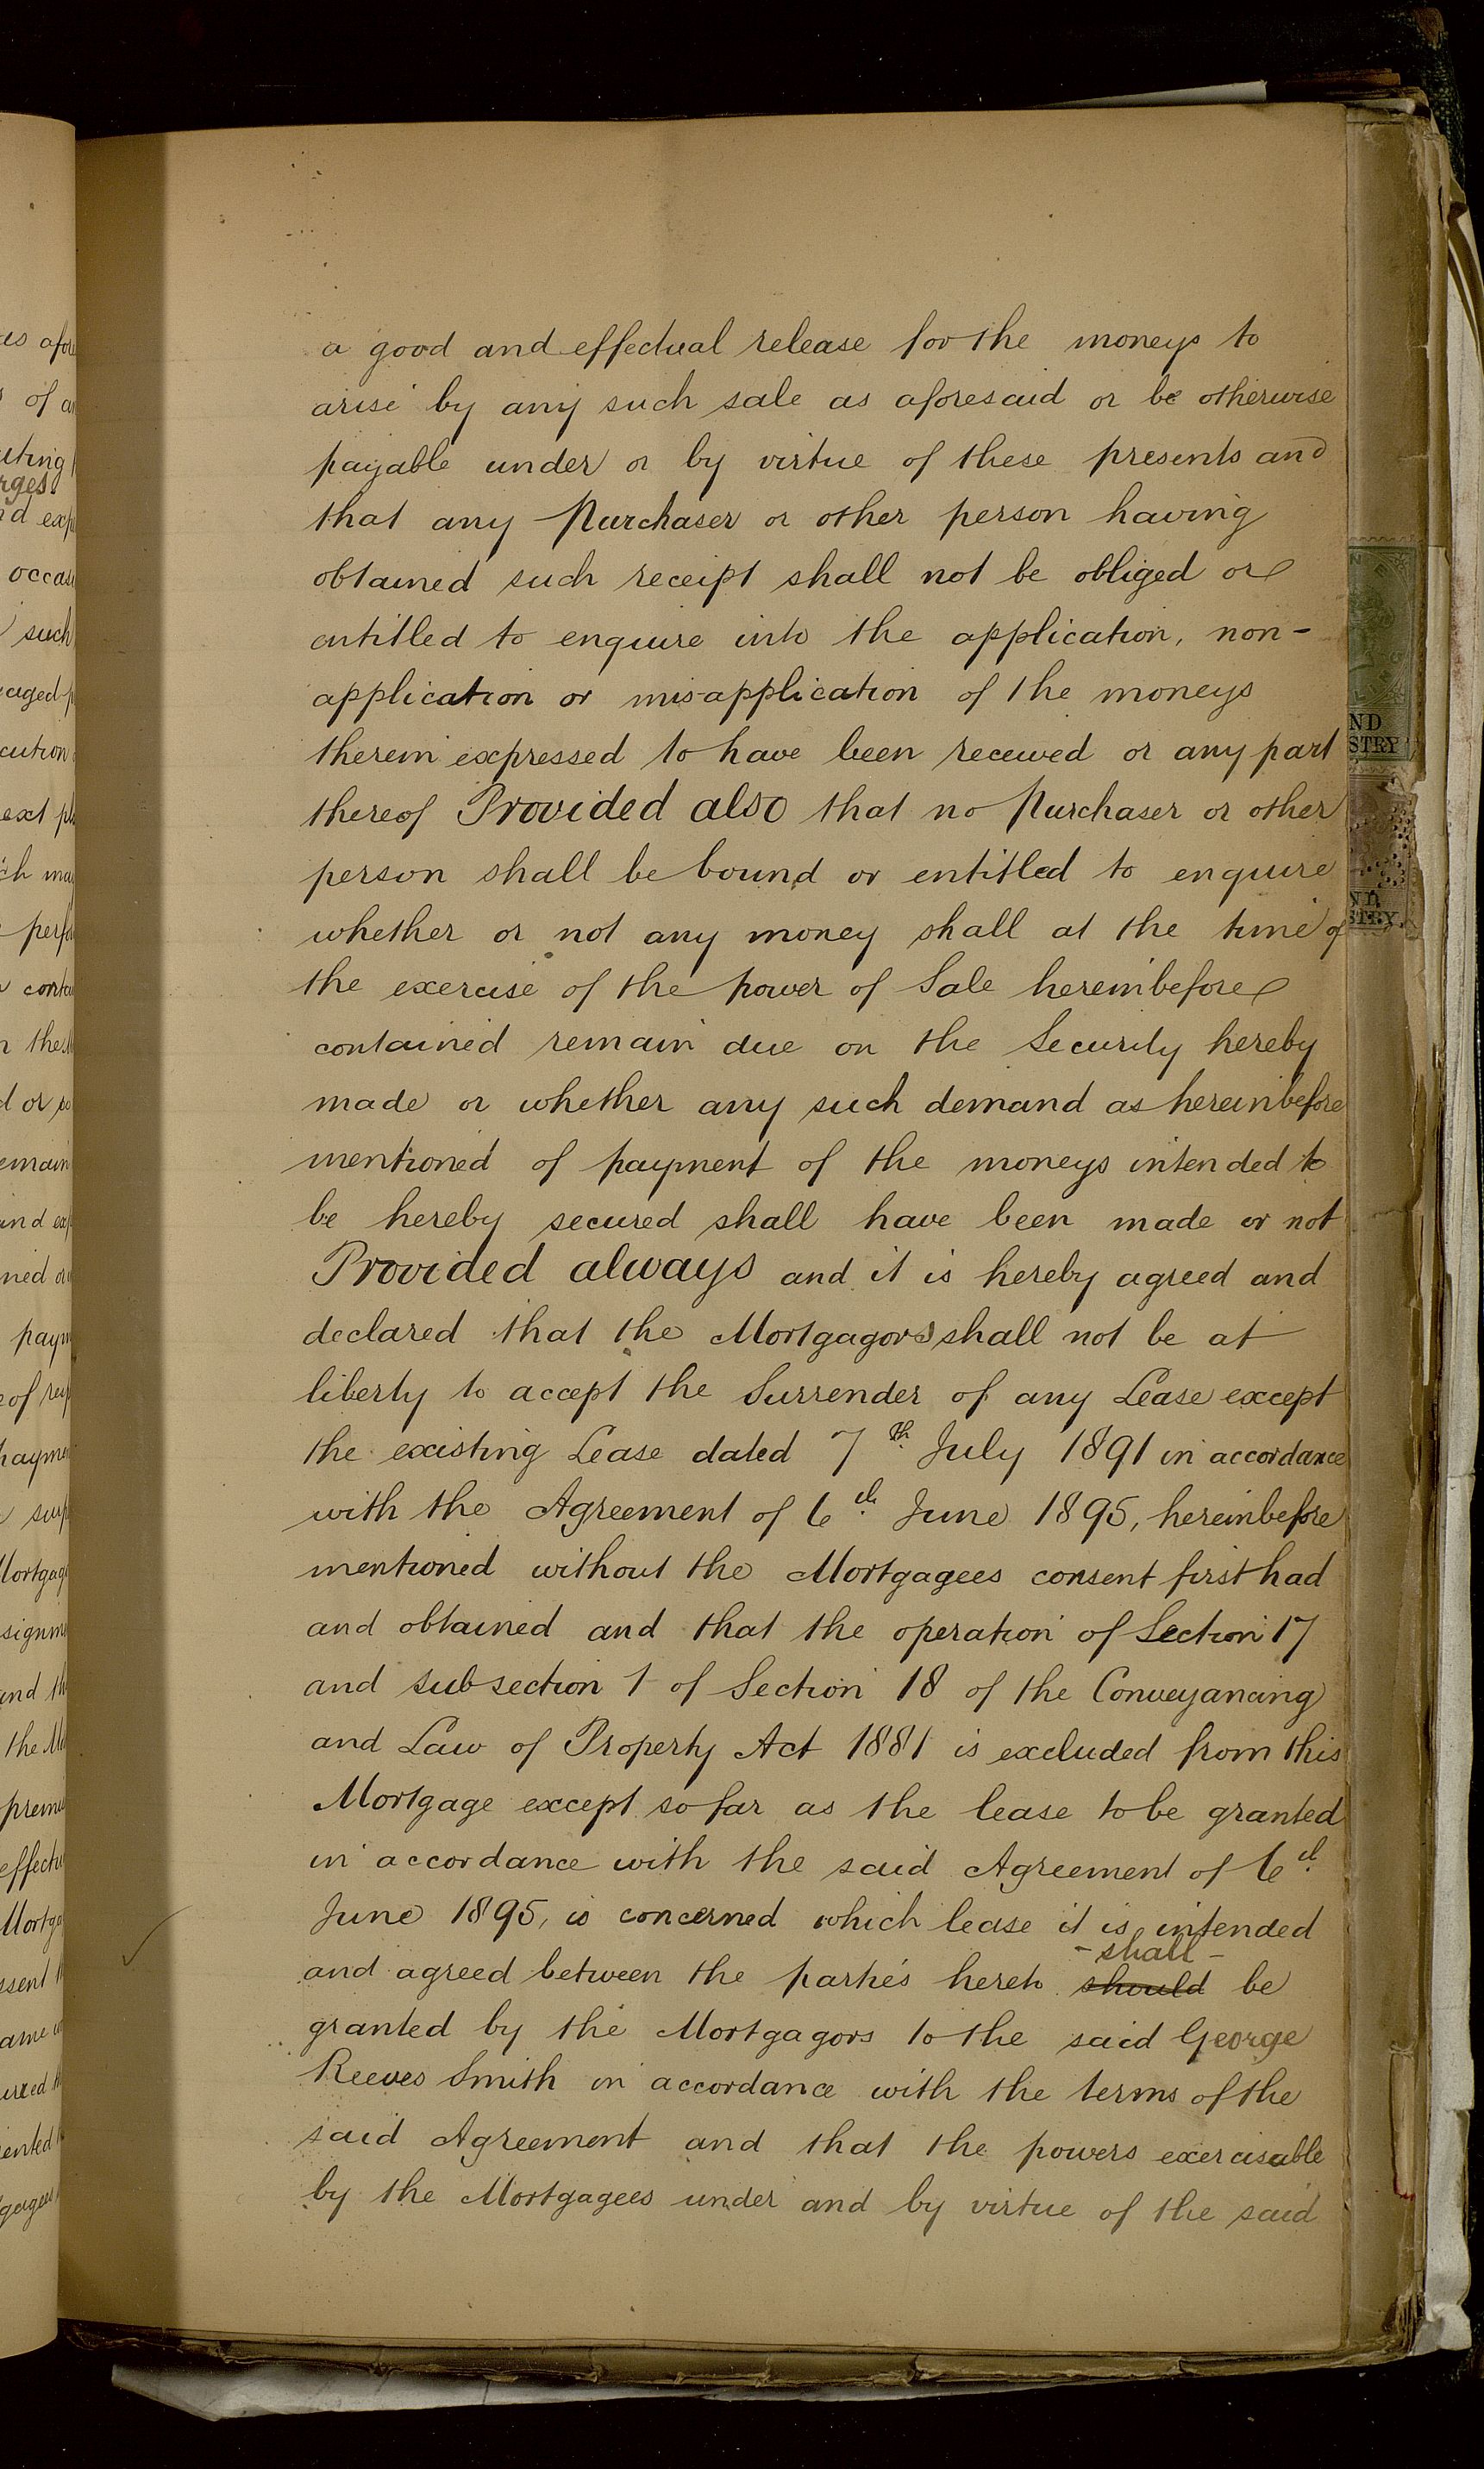 a good and effectual release for the moneys to
arise by any such sale as aforesaid or be otherwise
payable under or by virtue of these presents and
that any Purchaser or other person having
obtained such receipt shall not be obliged or
entitled to enquire into the application, non-
application or misapplication of the moneys
therein expressed to have been received or any part
thereof Provided also that no Purchaser or other
person shall be bound or entitled to enquire
whether or not any money shall at the time of
the exercise of the power of Sale hereinbefore
contained remain due on the Security hereby
made or whether any such demand as hereinbefore
mentioned of payment of the moneys intended to
be hereby secured shall have been made or not
Provided always and it is hereby agreed and
declared that the Mortgagors shall not be at
liberty to accept the Surrender of any Lease except
the existing Lease dated 7th July 1891 in accordance
with the Agreement of 6th June 1895, hereinbefore
mentioned without the Mortgagees consent first had
and obtained and that the operation of Section 17
and subsection 1 of Section 18 of the Conveyancing
and Law of Property Act 1881 is excluded from this
Mortgage except so far as the lease to be granted
in accordance with the said Agreement of 6th
June 1895, is concerned which lease it is intended
- shall -
and agreed between the parties hereto should be
granted by the Mortgagors to the said George
Reeves Smith in accordance with the terms of the
said Agreement and that the powers exercisable
by the Mortgagees under and by virtue of the said